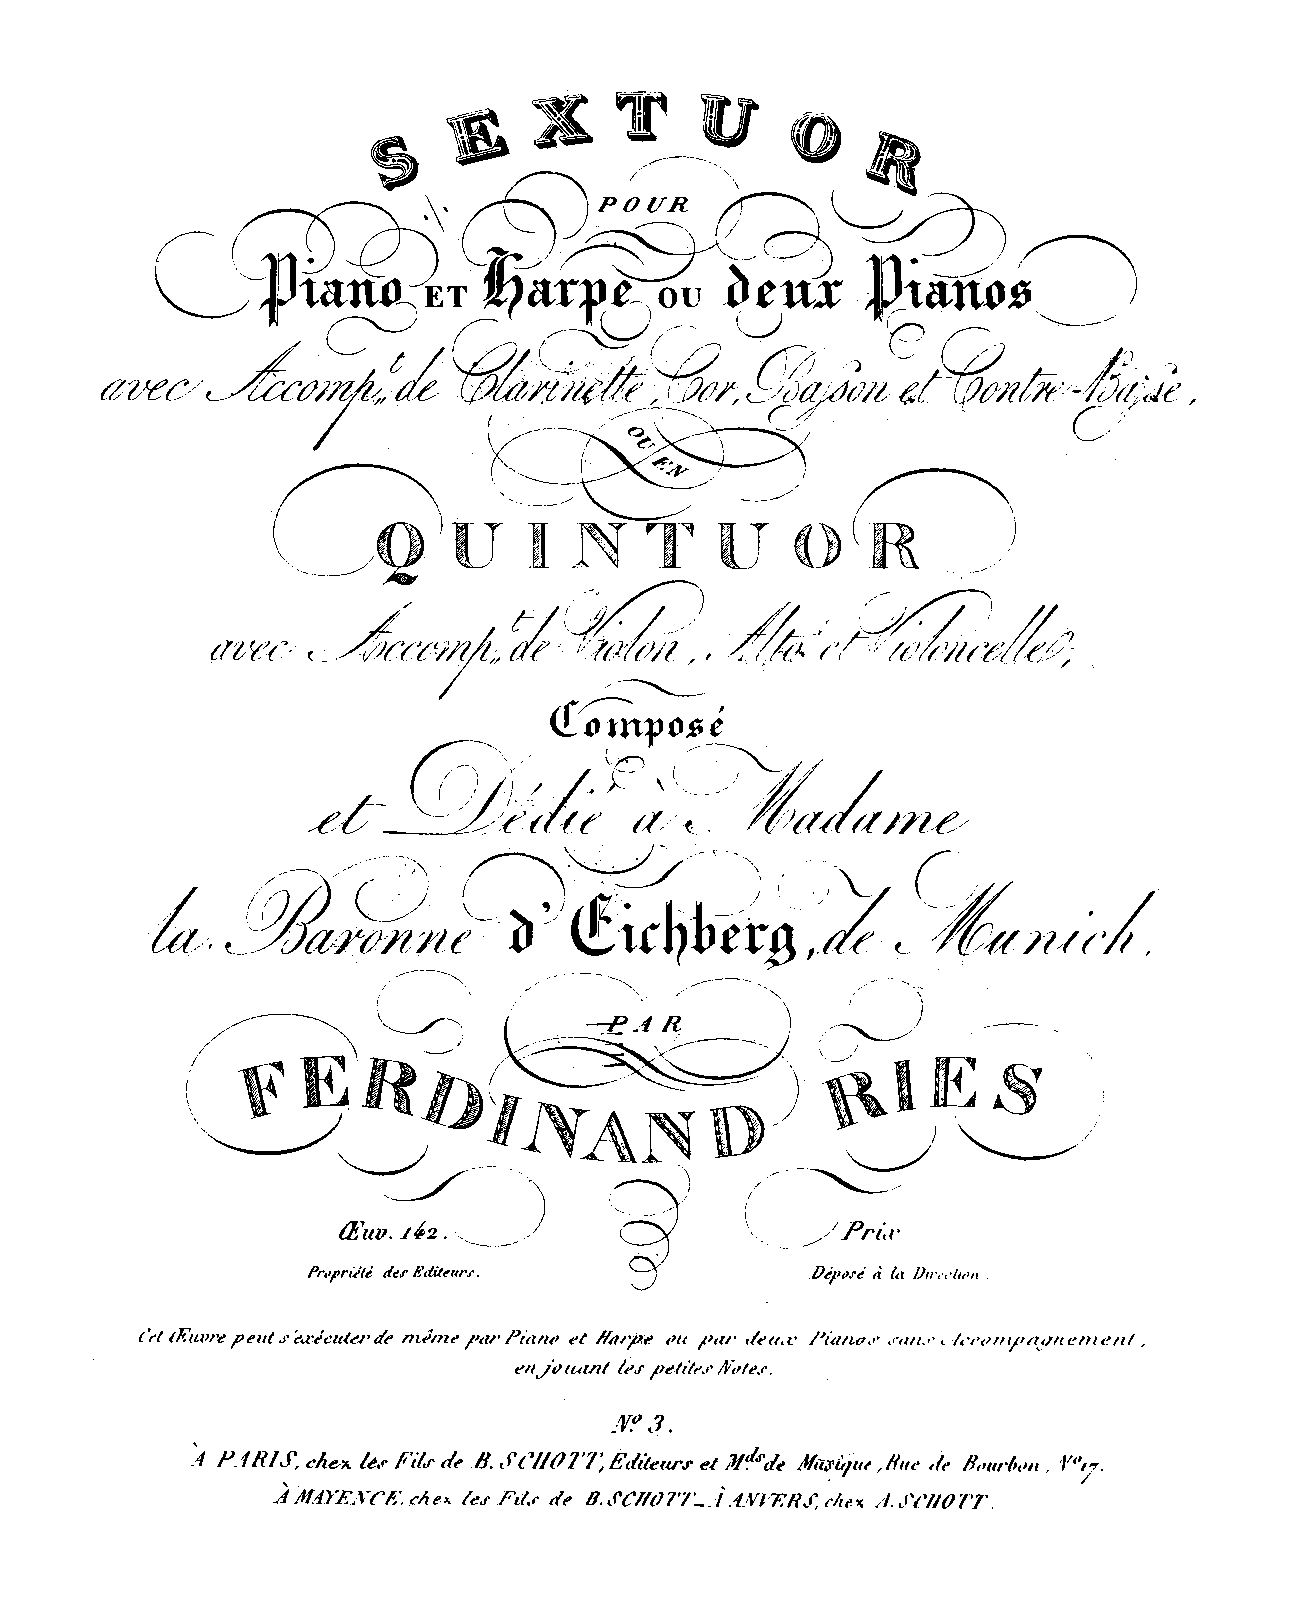 SEXTUOR
POUR
Piano ET Harpe OU deux Pianos
avec Accomp.t de Clarinette, Cor, Basson et Contre-Basse,
OU EN
QUINTUOR
avec Accomp.t de Violon, Alto et Violoncelle,
Composé
et Dédié à Madame
la Baronne d'Eichberg, de Munich.
PAR
FERDINAND RIES
Œuv. 142. Prix
Propriété des Editeurs. Déposé à la Direction.
Cet Œuvre peut s'exécuter de même par Piano et Harpe ou par deux Pianos sans Accompagnement,
en jouant les petites Notes.
No. 3.
À PARIS, chez les Fils de B. SCHOTT, Editeurs et M.ds de Musique, Rue de Bourbon, No 17.
À MAYENCE, chez les Fils de B. SCHOTT _ À ANVERS, chez A. SCHOTT.